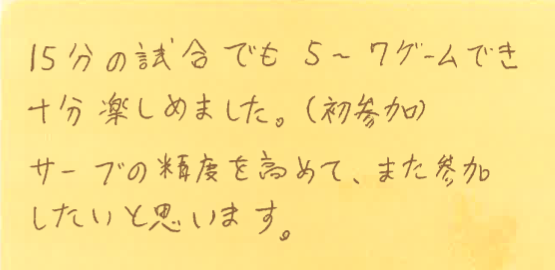 15分の試合でも 5〜7ゲームでき
十分楽しめました。(初参加)
サーブの精度を高めて、また参加
したいと思います。